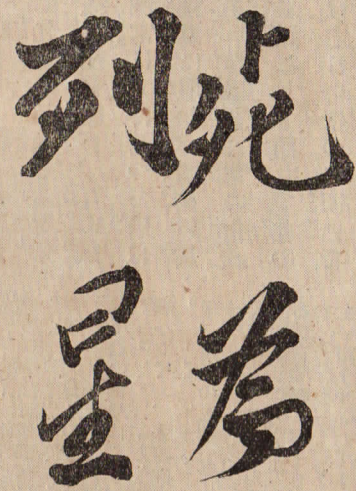 死為
列星